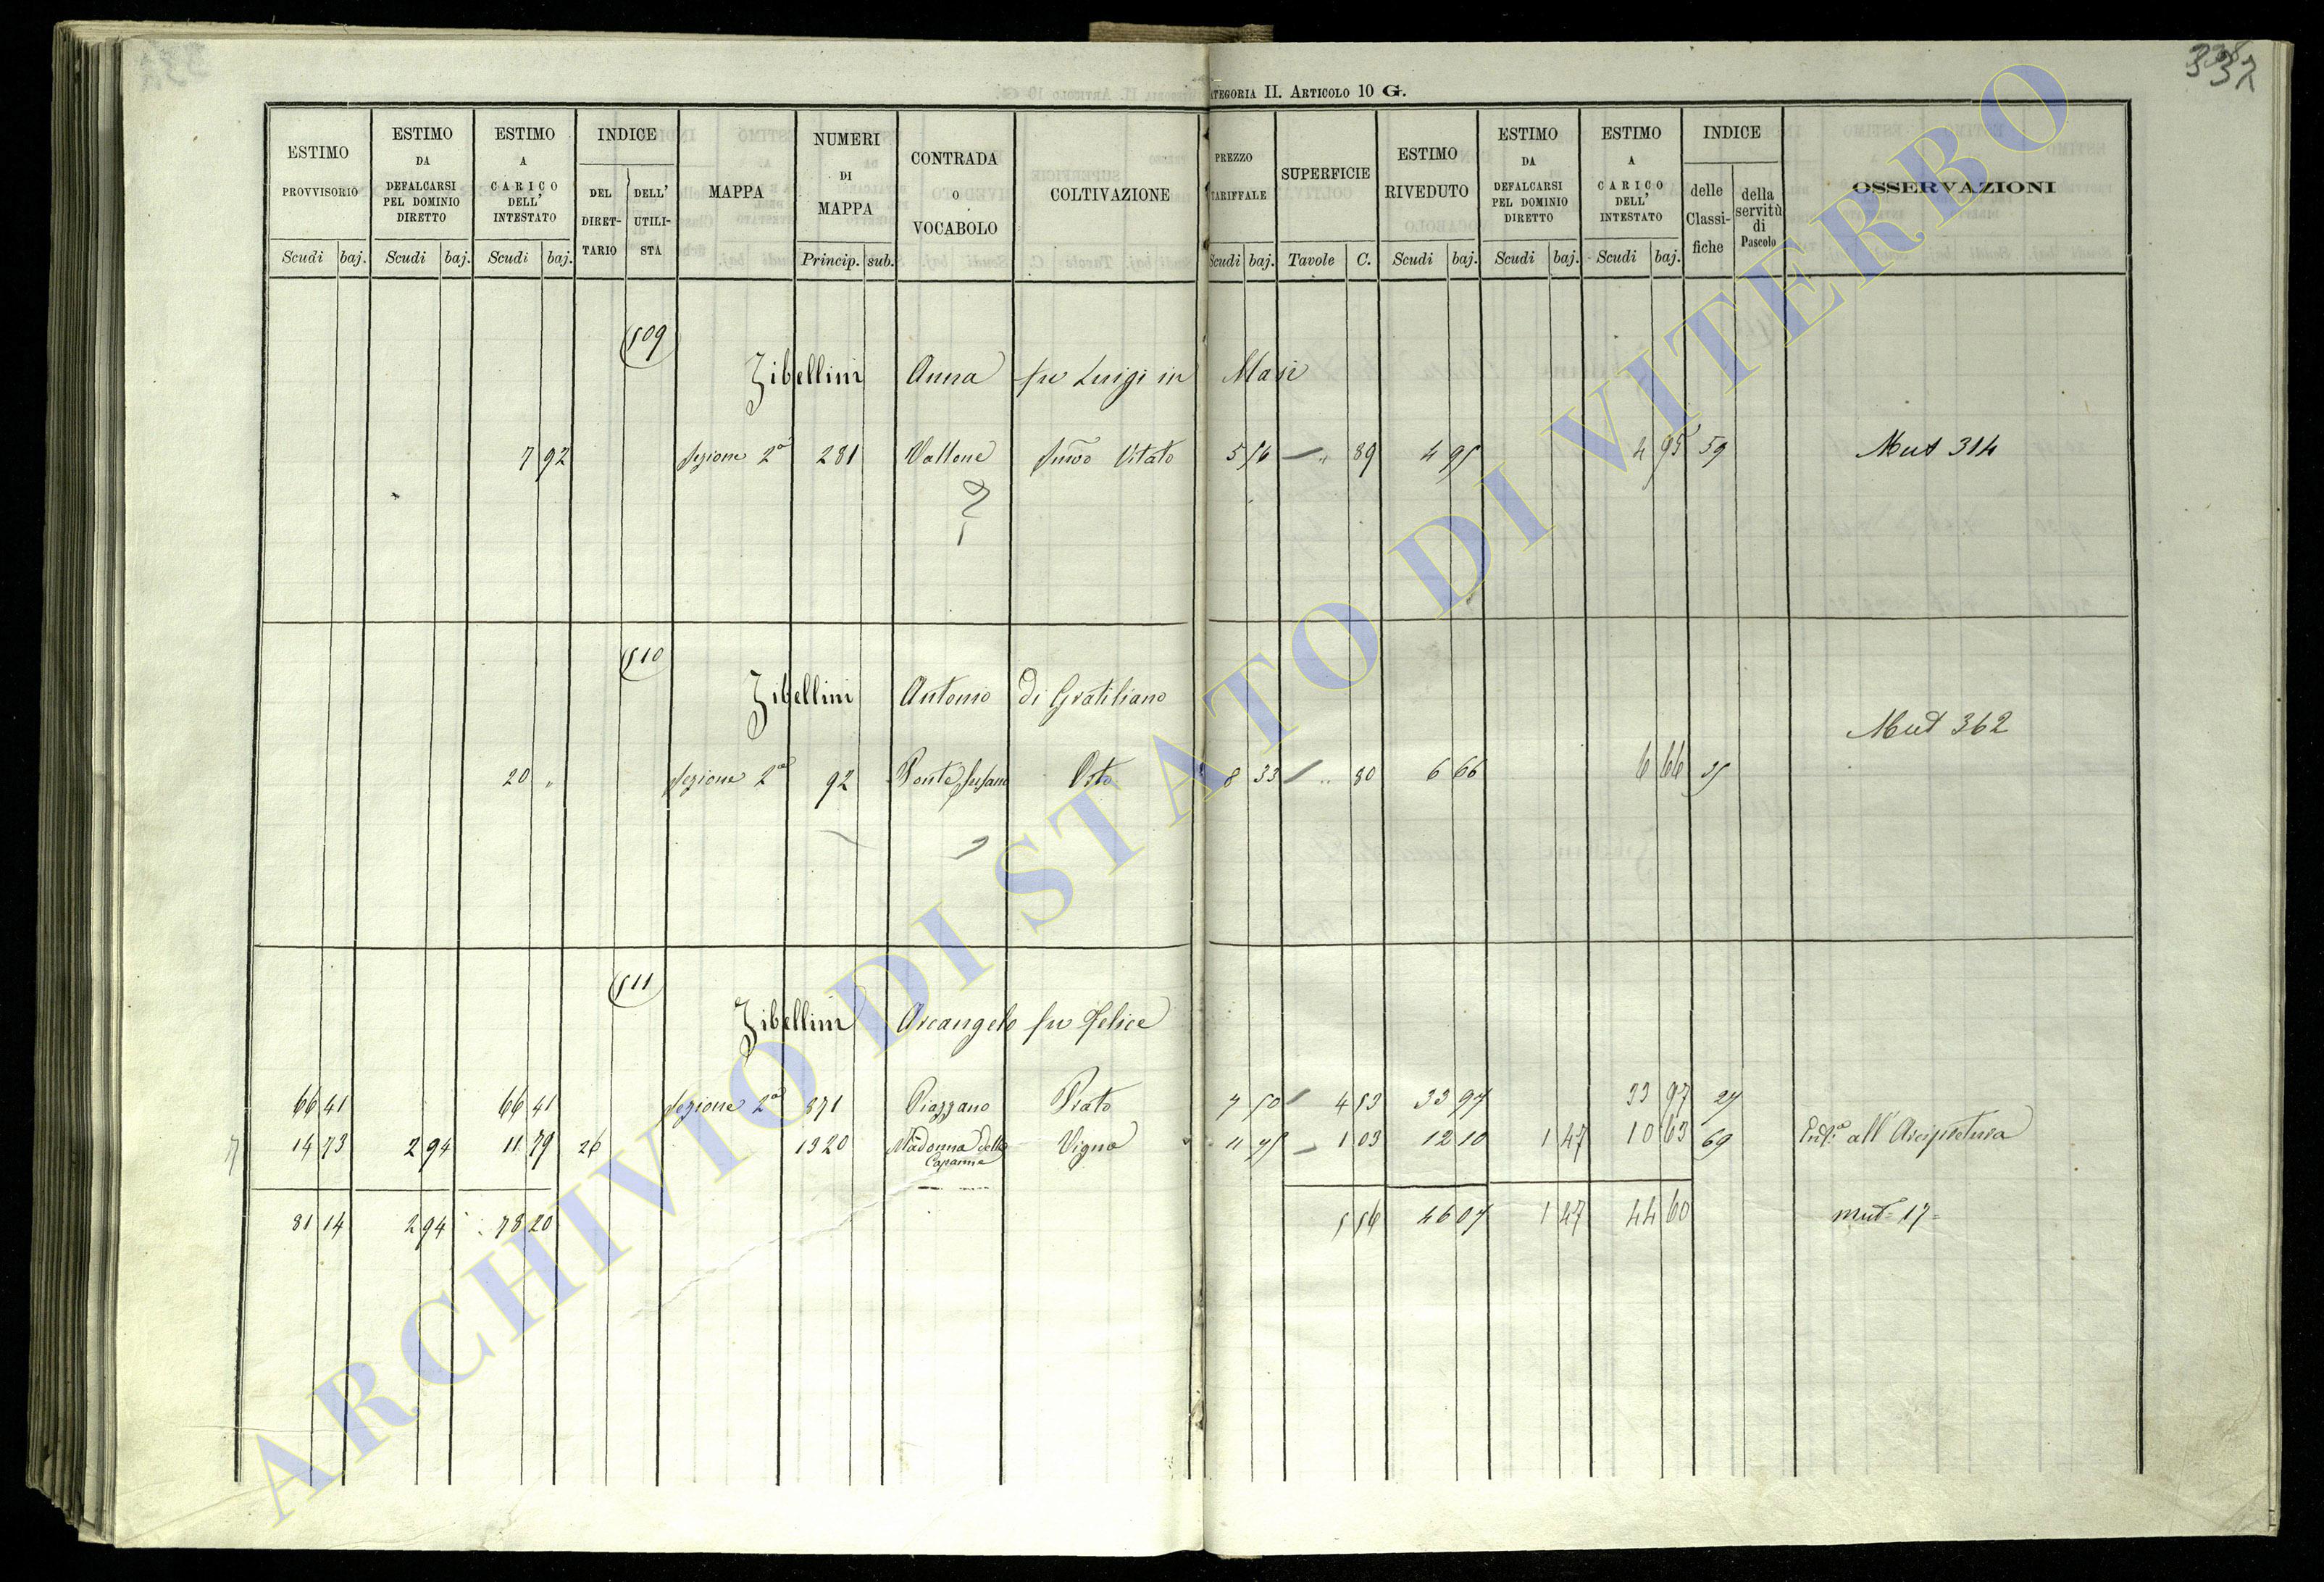 CATEGORIA II. ARTICOLO 10 G.
332
ESTIMO PROVVISORIO Scudi baj.
ESTIMO DA DEFALCARSI PEL DOMINIO DIRETTO Scudi baj.
ESTIMO A CARICO DELL' INTESTATO Scudi baj.
INDICE DEL DIRETTARIO DELL' UTILISTA
MAPPA
NUMERI DI MAPPA Princip. sub.
CONTRADA O VOCABOLO
COLTIVAZIONE
PREZZO TARIFFALE Scudi baj.
SUPERFICIE Tavole C.
ESTIMO RIVEDUTO Scudi baj.
ESTIMO DA DEFALCARSI PEL DOMINIO DIRETTO Scudi baj.
ESTIMO A CARICO DELL' INTESTATO Scudi baj.
INDICE delle Classifiche della servitù di Pascolo
OSSERVAZIONI
509
Zibellini Anna fu Luigi in Masi
7 92 Sezione 2ª 281 Vallone Semvo Vitato 5 56 " 89 4 95 4 95 59 Mut 314
510
Zibellini Antonio di Gratiliano
Mut 362
20 " Sezione 2ª 92 Ponte Susano Orto 8 33 " 80 6 66 6 66 35
511
Zibellini Arcangelo fu Felice
66 41 66 41 Sezione 2ª 371 Piazzano Prato 7 50 4 53 33 97 33 97 27
14 73 2 94 11 79 26 1320 Madonna delle Capanne Vigna 11 75 1 03 12 10 1 47 10 63 69 Enfª all'Arcipretura
81 14 2 94 78 20 5 56 46 07 1 47 44 60 mut= 17=
ARCHIVIO DI STATO DI VITERBO